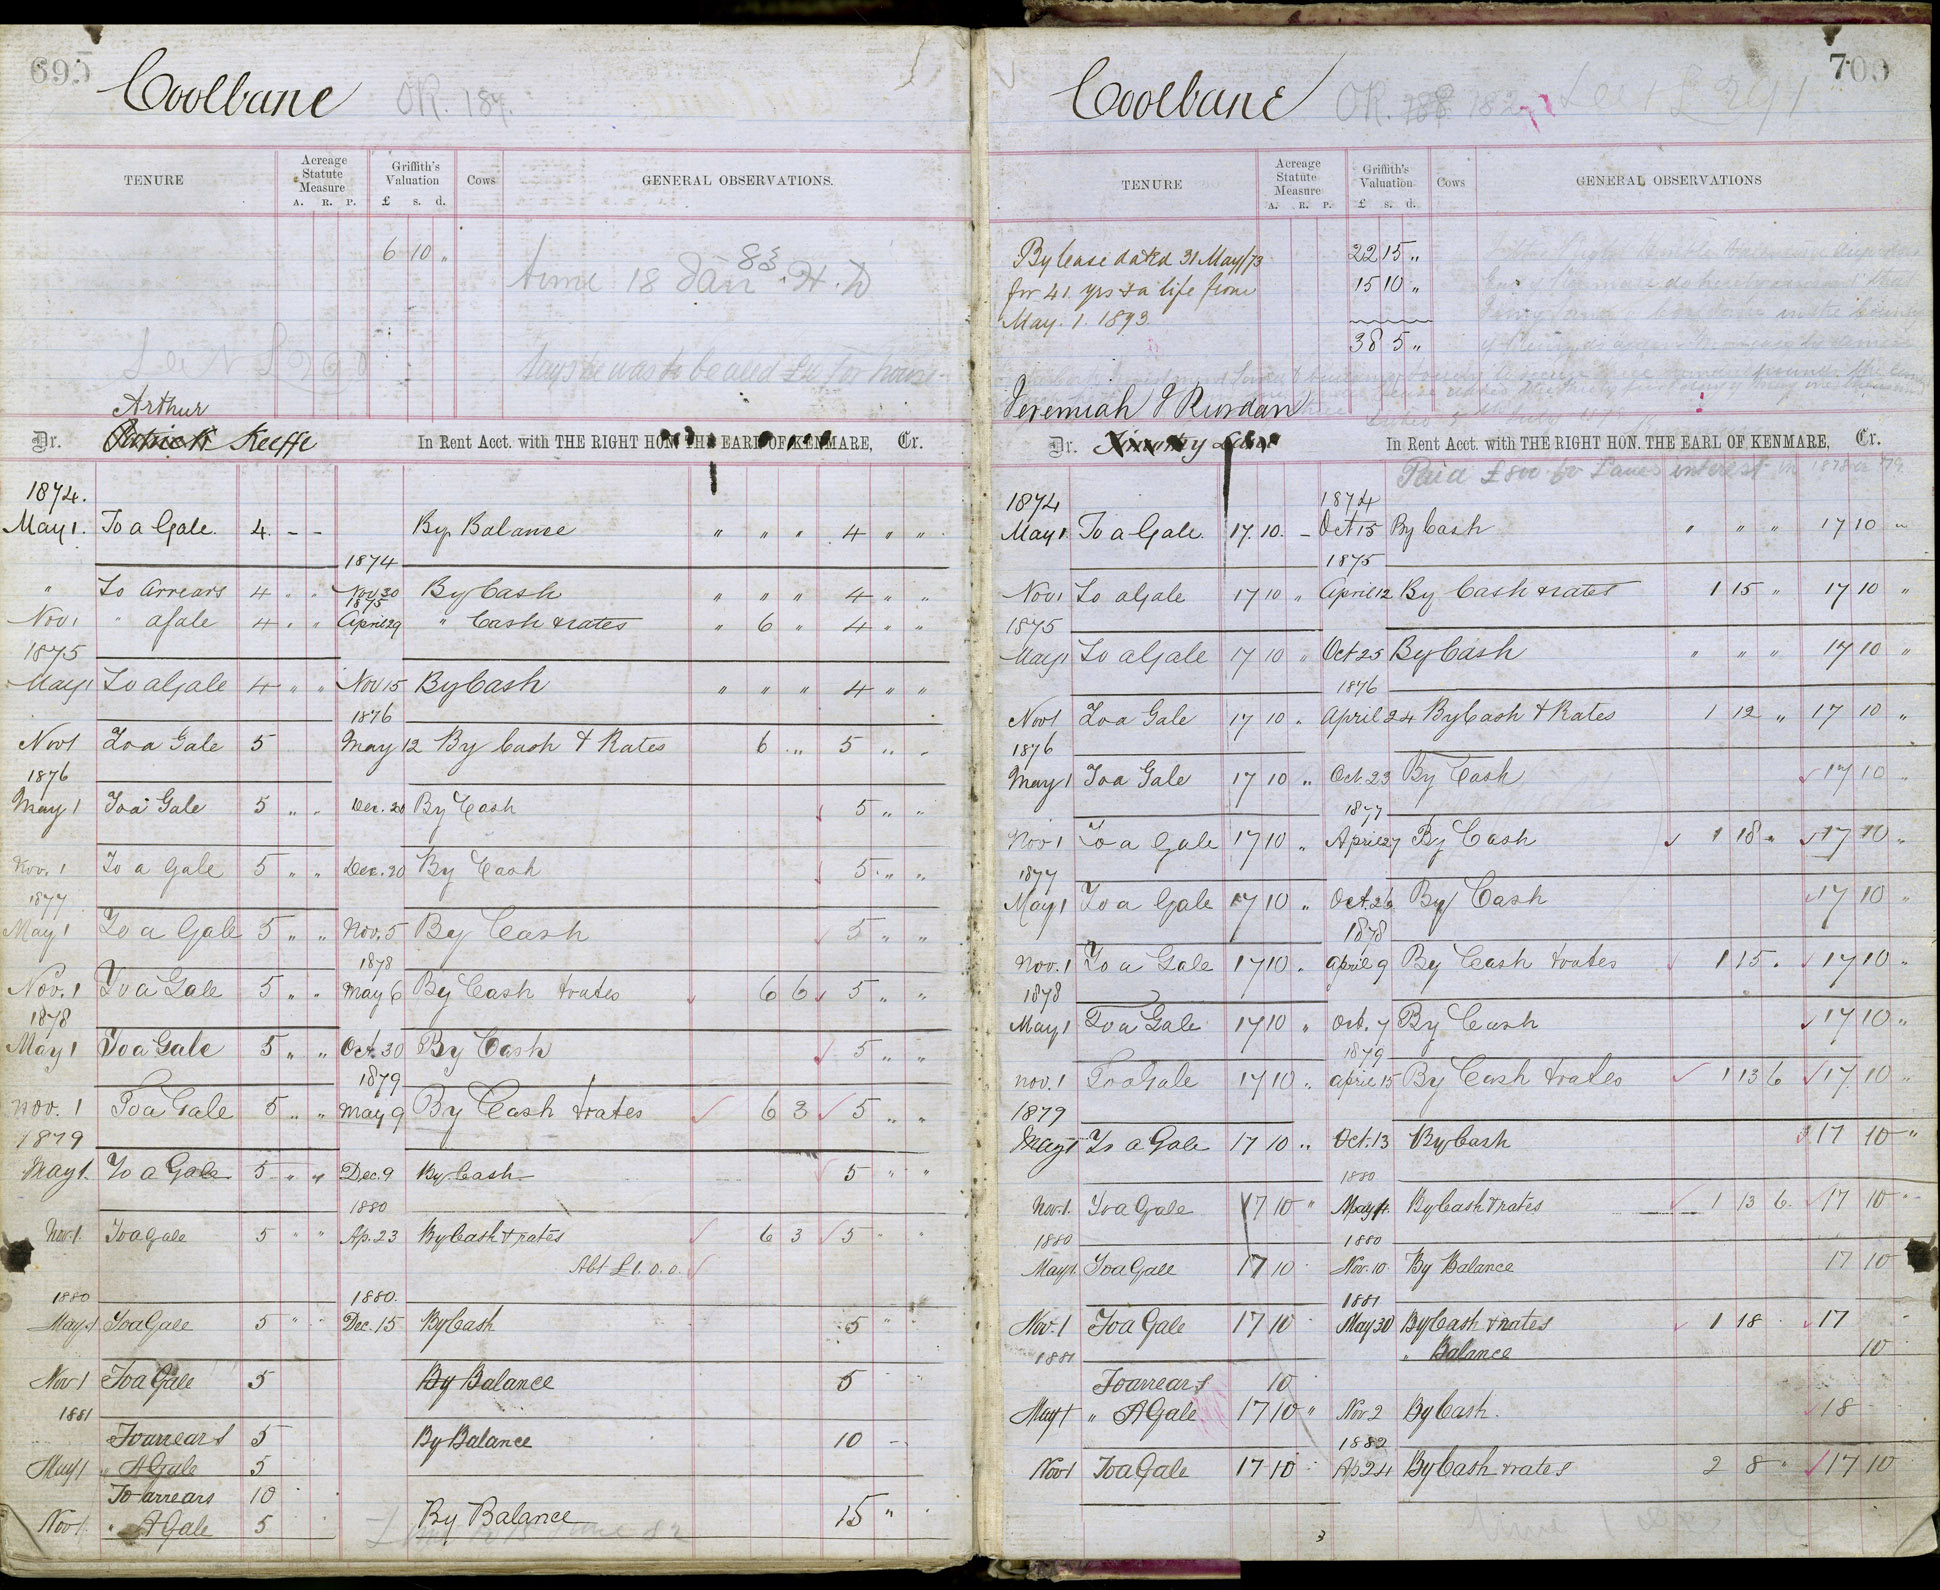 695
Coolbane
OR. 187.
TENURE
Acreage Statute Measure
A. R. P.
Griffith's Valuation
£ s. d.
Cows
GENERAL OBSERVATIONS.
6 10 "
time 18 Jan 83. H. D
Says he was to be aled £4 for house
Arthur
Dr. Patrick Keeffe In Rent Acct. with THE RIGHT HON. THE EARL OF KENMARE, Cr.
1874.
May 1. To a Gale. 4 - - By Balance " " " 4 " "
1874
" To Arrears 4 " " Nov 30 By Cash " " " 4 " "
1875
Nov 1 " a Gale 4 " " April 29 " Cash & rates " 6 " 4 " "
1875
May 1 To a Gale 4 " " Nov 15 By Cash " " " 4 " "
1876
Nov 1 To a Gale 5 May 12 By Cash & Rates 6 " 5 " "
1876
May 1 To a Gale 5 " " Dec. 20 By Cash 5 " "
Nov. 1 To a Gale 5 " " Dec. 20 By Cash 5 " "
1877
May 1 To a Gale 5 " " Nov. 5 By Cash 5 " "
1878
Nov. 1 To a Gale 5 " " May 6 By Cash & rates 6 6 5 " "
1878
May 1 To a Gale 5 " " Oct. 30 By Cash 5 " "
1879
Nov. 1 To a Gale 5 " " May 9 By Cash & rates 6 3 5 " "
1879
May 1. To a Gale 5 " " Dec. 9 By Cash 5 " "
1880
Nov. 1. To a Gale 5 " " Ap. 23 By Cash & rates 6 3 5 " "
Abt £1. 0. 0.
1880 1880.
May 1 To a Gale 5 " " Dec. 15 By Cash 5 "
Nov 1 To a Gale 5 By Balance 5
1881
To arrears 5 By Balance 10 -
May 1 " A Gale 5
To arrears 10
Nov 1. " A Gale 5 By Balance 15 "
700
Coolbane
OR. 182
TENURE
Acreage Statute Measure
A. R. P.
Griffith's Valuation
£ s. d.
Cows
GENERAL OBSERVATIONS
By lease dated 31 May/73 22 15 "
for 41 yrs & a life from 15 10 "
May. 1. 1893.
38 5 "
Jeremiah J Riordan
Dr. Timothy In Rent Acct. with THE RIGHT HON. THE EARL OF KENMARE, Cr.
Paid £800 for Lanes interest in 1878 or 79
1874 1874
May 1 To a Gale. 17. 10. - Oct 15 By Cash " " " 17 10 "
1875
Nov 1 To a Gale 17 10 " April 12 By Cash & rates 1 15 " 17 10 "
1875
May 1 To a Gale 17 10 " Oct 25 By Cash " " " 17 10 "
1876
Nov 1 To a Gale 17 10 " April 24 By Cash & Rates 1 12 " 17 10 "
1876
May 1 To a Gale 17 10 " Oct. 23 By Cash 17 10 "
1877
Nov 1 To a Gale 17 10 " April 27 By Cash 1 18 " 17 10 "
1877
May 1 To a Gale 17 10 " Oct. 26 By Cash 17 10 "
1878
Nov. 1 To a Gale 17 10 " April 9 By Cash & rates 1 15 " 17 10 "
1878
May 1 To a Gale 17 10 " Oct. 7 By Cash 17 10 "
1879
Nov. 1 To a Gale 17 10 " April 15 By Cash & rates 1 13 6 17 10 "
1879
May 1 To a Gale 17 10 " Oct. 13 By Cash 17 10 "
1880
Nov. 1. To a Gale 17 10 " May 4. By Cash & rates 1 13 6. 17 10 "
1880 1880
May 1. To a Gale 17 10 Nov. 10 By Balance 17 10
1881
Nov. 1 To a Gale 17 10 May 30 By Cash & rates 1 18 17
1881 " Balance 10
To arrears 10
May 1 " A Gale 17 10 " Nov 2 By Cash. 18
1882
Nov 1 To a Gale 17 10 Ap. 24 By Cash & rates 2 8 17 10
3